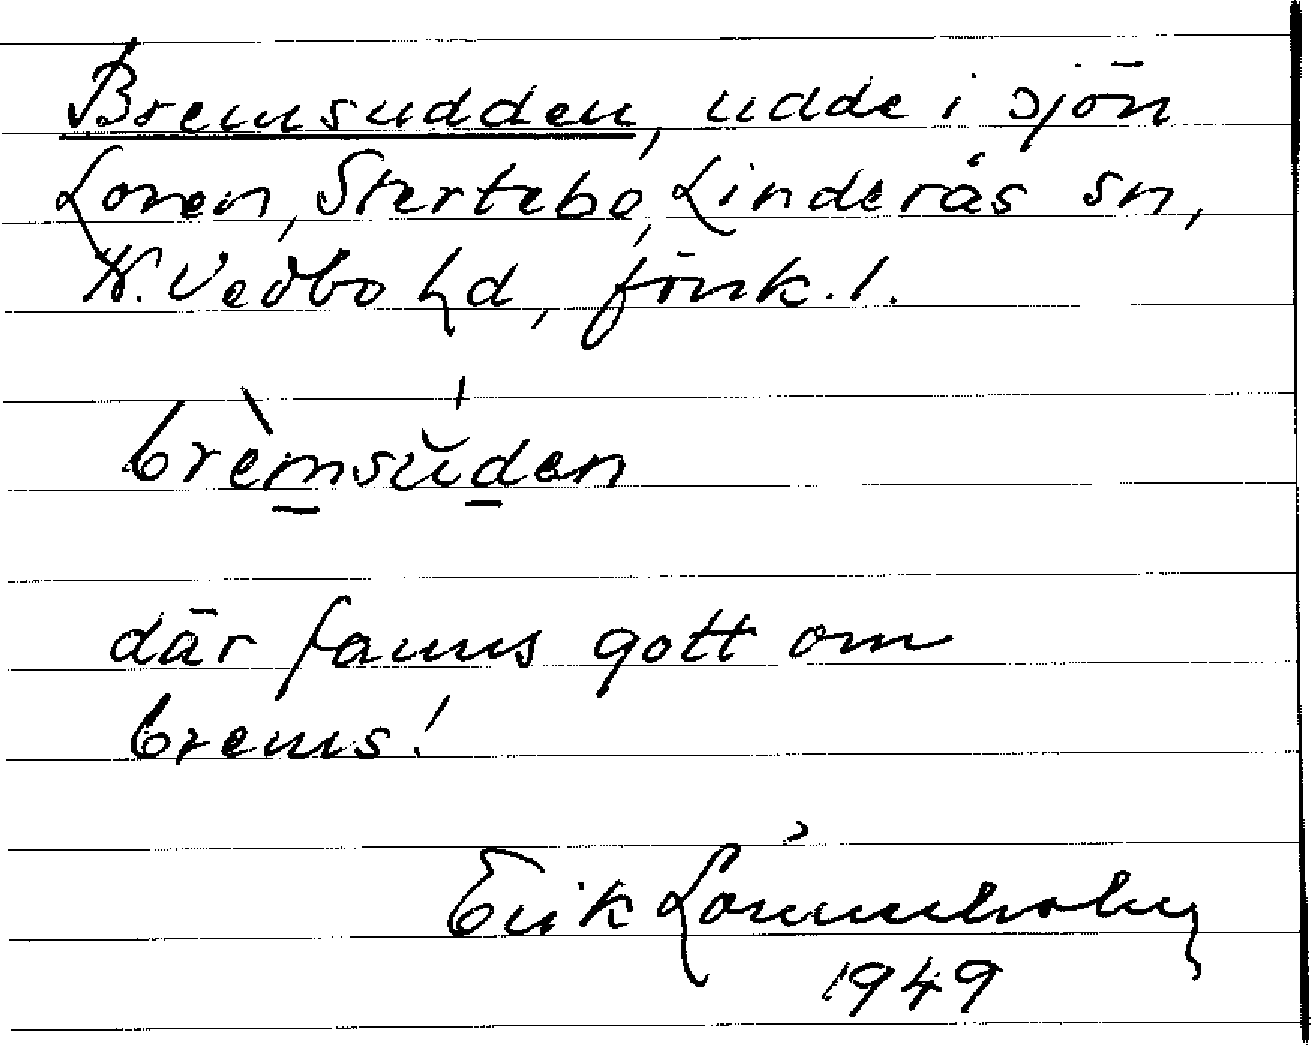 Bremsudden, udde i sjön
Loren, Stertebo, Linderås sn,
N. Vedbo hd, Jönk. l.
brèmsŭden
där fanns gott om
brems!
Erik Lönnerholm
1949